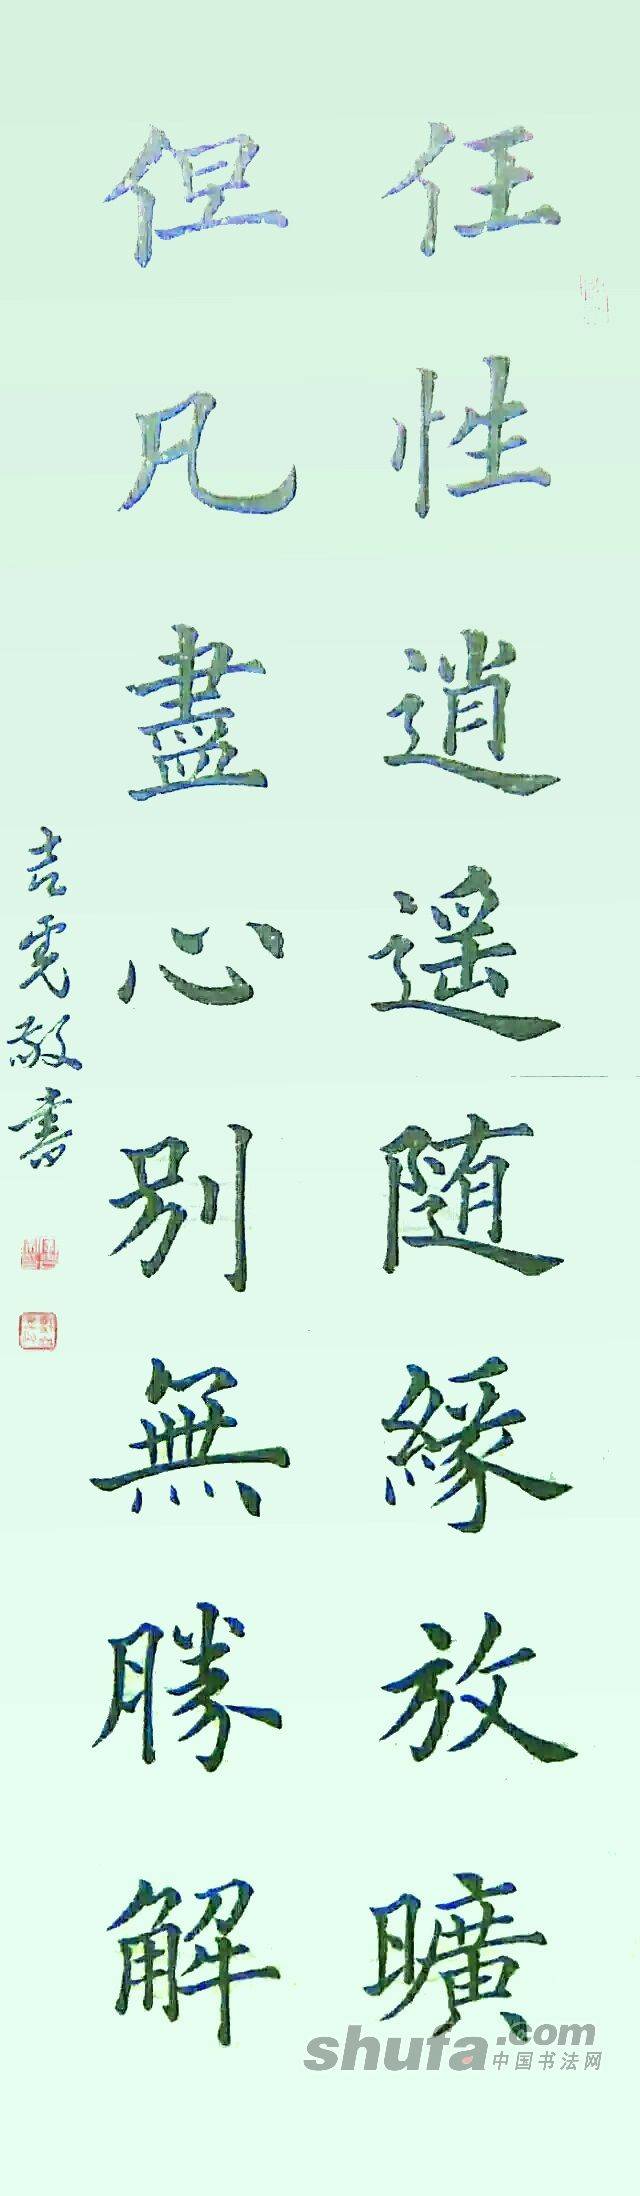 任性逍遥随緣放曠
但凡盡心别無勝解
敬書
shufa.com
中国书法网